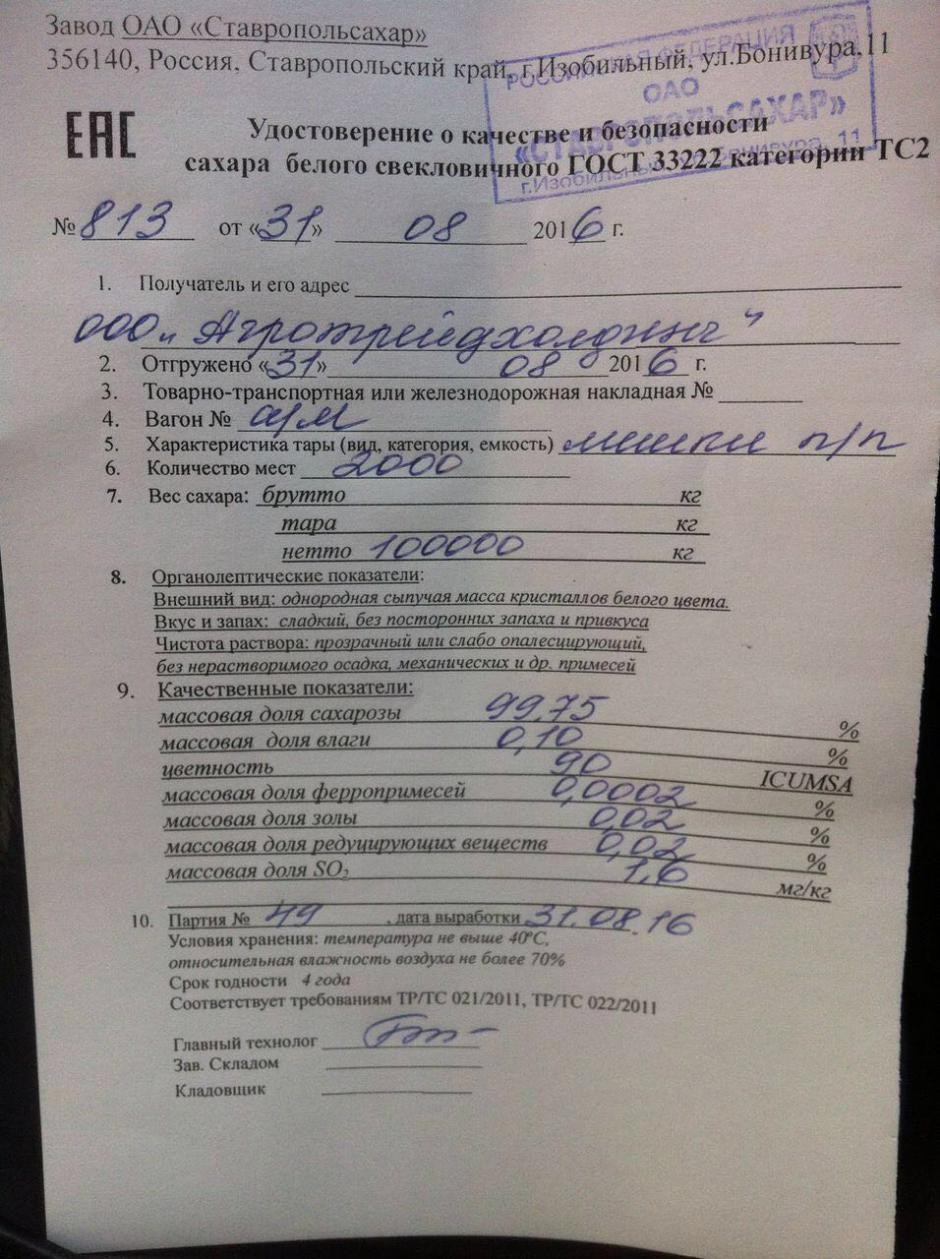 Завод ОАО «Ставропольсахар»
356140, Россия, Ставропольский край, г.Изобильный, ул.Бонивура,11
РОССИЙСКАЯ ФЕДЕРАЦИЯ
ОАО
«СТАВРОПОЛЬСАХАР»
г.Изобильный, ул. Бонивура, 11
ЕАС
Удостоверение о качестве и безопасности
сахара белого свекловичного ГОСТ 33222 категории ТС2
№ 813 от «31» 08 2016 г.
1. Получатель и его адрес
ООО „Агротрейдхолдинг"
2. Отгружено «31» 08 2016 г.
3. Товарно-транспортная или железнодорожная накладная №
4. Вагон № а/м
5. Характеристика тары (вид, категория, емкость) мешки п/п
6. Количество мест 2000
7. Вес сахара: брутто кг
тара кг
нетто 100000 кг
8. Органолептические показатели:
Внешний вид: однородная сыпучая масса кристаллов белого цвета.
Вкус и запах: сладкий, без посторонних запаха и привкуса
Чистота раствора: прозрачный или слабо опалесцирующий,
без нерастворимого осадка, механических и др. примесей
9. Качественные показатели:
массовая доля сахарозы 99,75 %
массовая доля влаги 0,10 %
цветность 90 ICUMSA
массовая доля ферропримесей 0,0002 %
массовая доля золы 0,02 %
массовая доля редуцирующих веществ 0,02 %
массовая доля SO₂ 1,6 мг/кг
10. Партия № 49 , дата выработки 31.08.16
Условия хранения: температура не выше 40°С,
относительная влажность воздуха не более 70%
Срок годности 4 года
Соответствует требованиям ТР/ТС 021/2011, ТР/ТС 022/2011
Главный технолог
Зав. Складом
Кладовщик